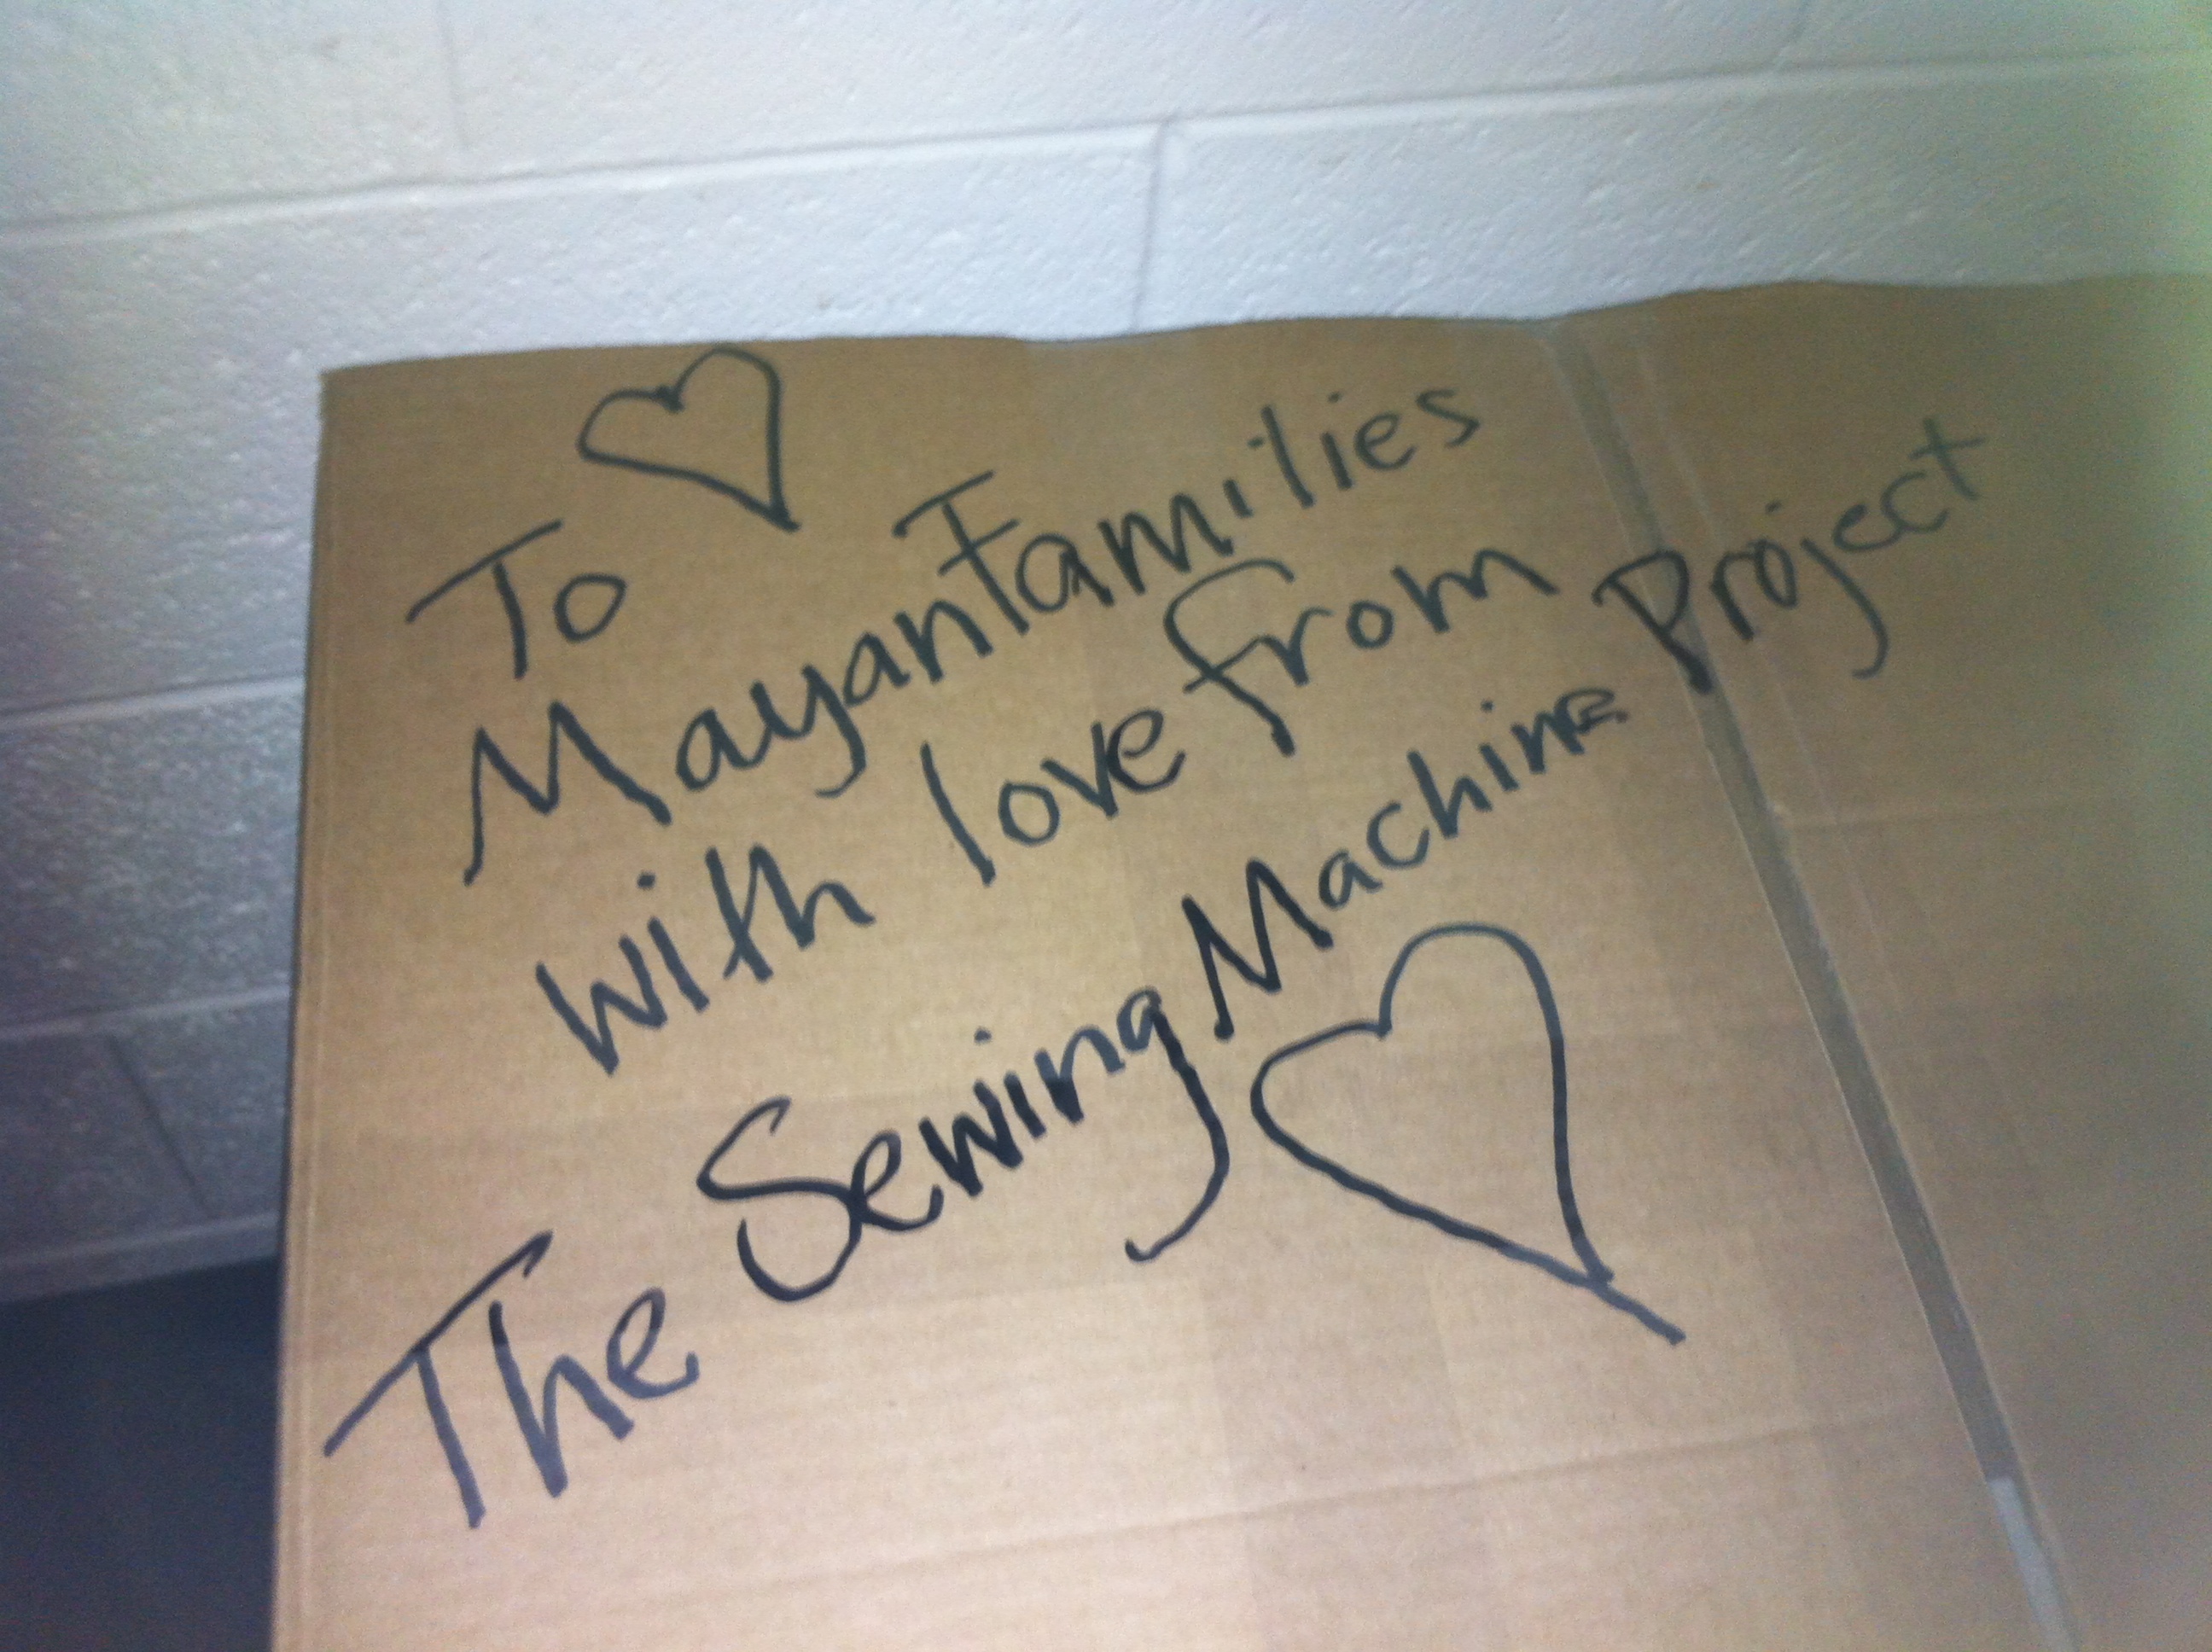 To
Mayan Families
with love from
The Sewing Machine Project